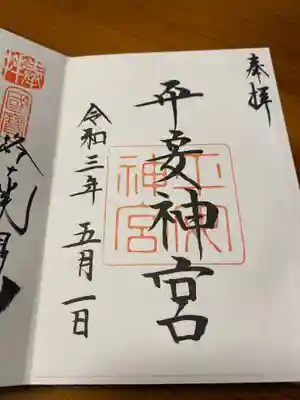 奉拝
平安神宮
平安神宮
令和三年 五月一日